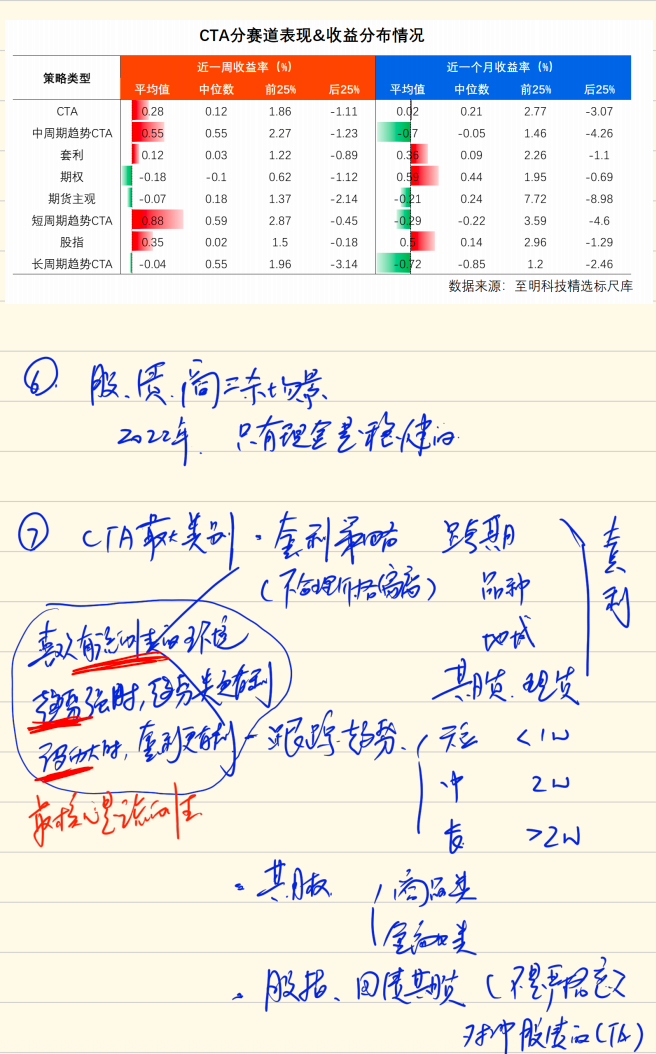 CTA分赛道表现&收益分布情况
策略类型 近一周收益率（%） 近一个月收益率（%）
平均值 中位数 前25% 后25% 平均值 中位数 前25% 后25%
CTA 0.28 0.12 1.86 -1.11 0.02 0.21 2.77 -3.07
中周期趋势CTA 0.55 0.55 2.27 -1.23 -0.7 -0.05 1.46 -4.26
套利 0.12 0.03 1.22 -0.89 0.36 0.09 2.26 -1.1
期权 -0.18 -0.1 0.62 -1.12 0.59 0.44 1.95 -0.69
期货主观 -0.07 0.18 1.37 -2.14 -0.21 0.24 7.72 -8.98
短周期趋势CTA 0.88 0.59 2.87 -0.45 -0.29 -0.22 3.59 -4.6
股指 0.35 0.02 1.5 -0.18 0.5 0.14 2.96 -1.29
长周期趋势CTA -0.04 0.55 1.96 -3.14 -0.72 -0.85 1.2 -2.46
数据来源：至明科技精选标尺库
⑥ 股、债、商三杀场景
2022年. 只有现金是稳健的.
⑦ CTA最大类别 · 套利策略 跨期 套利
(不合理价格偏离) 品种
地域
期货、现货
喜欢有流动性的环境
趋势强时, 趋势类更有利
波动大时, 套利更有利
最核心是流动性
- 跟踪趋势、短 <1W
中 2W
长 >2W
· 期权 商品类
金融类
· 股指、国债期货 (不是严格意义
对冲股债的CTA)